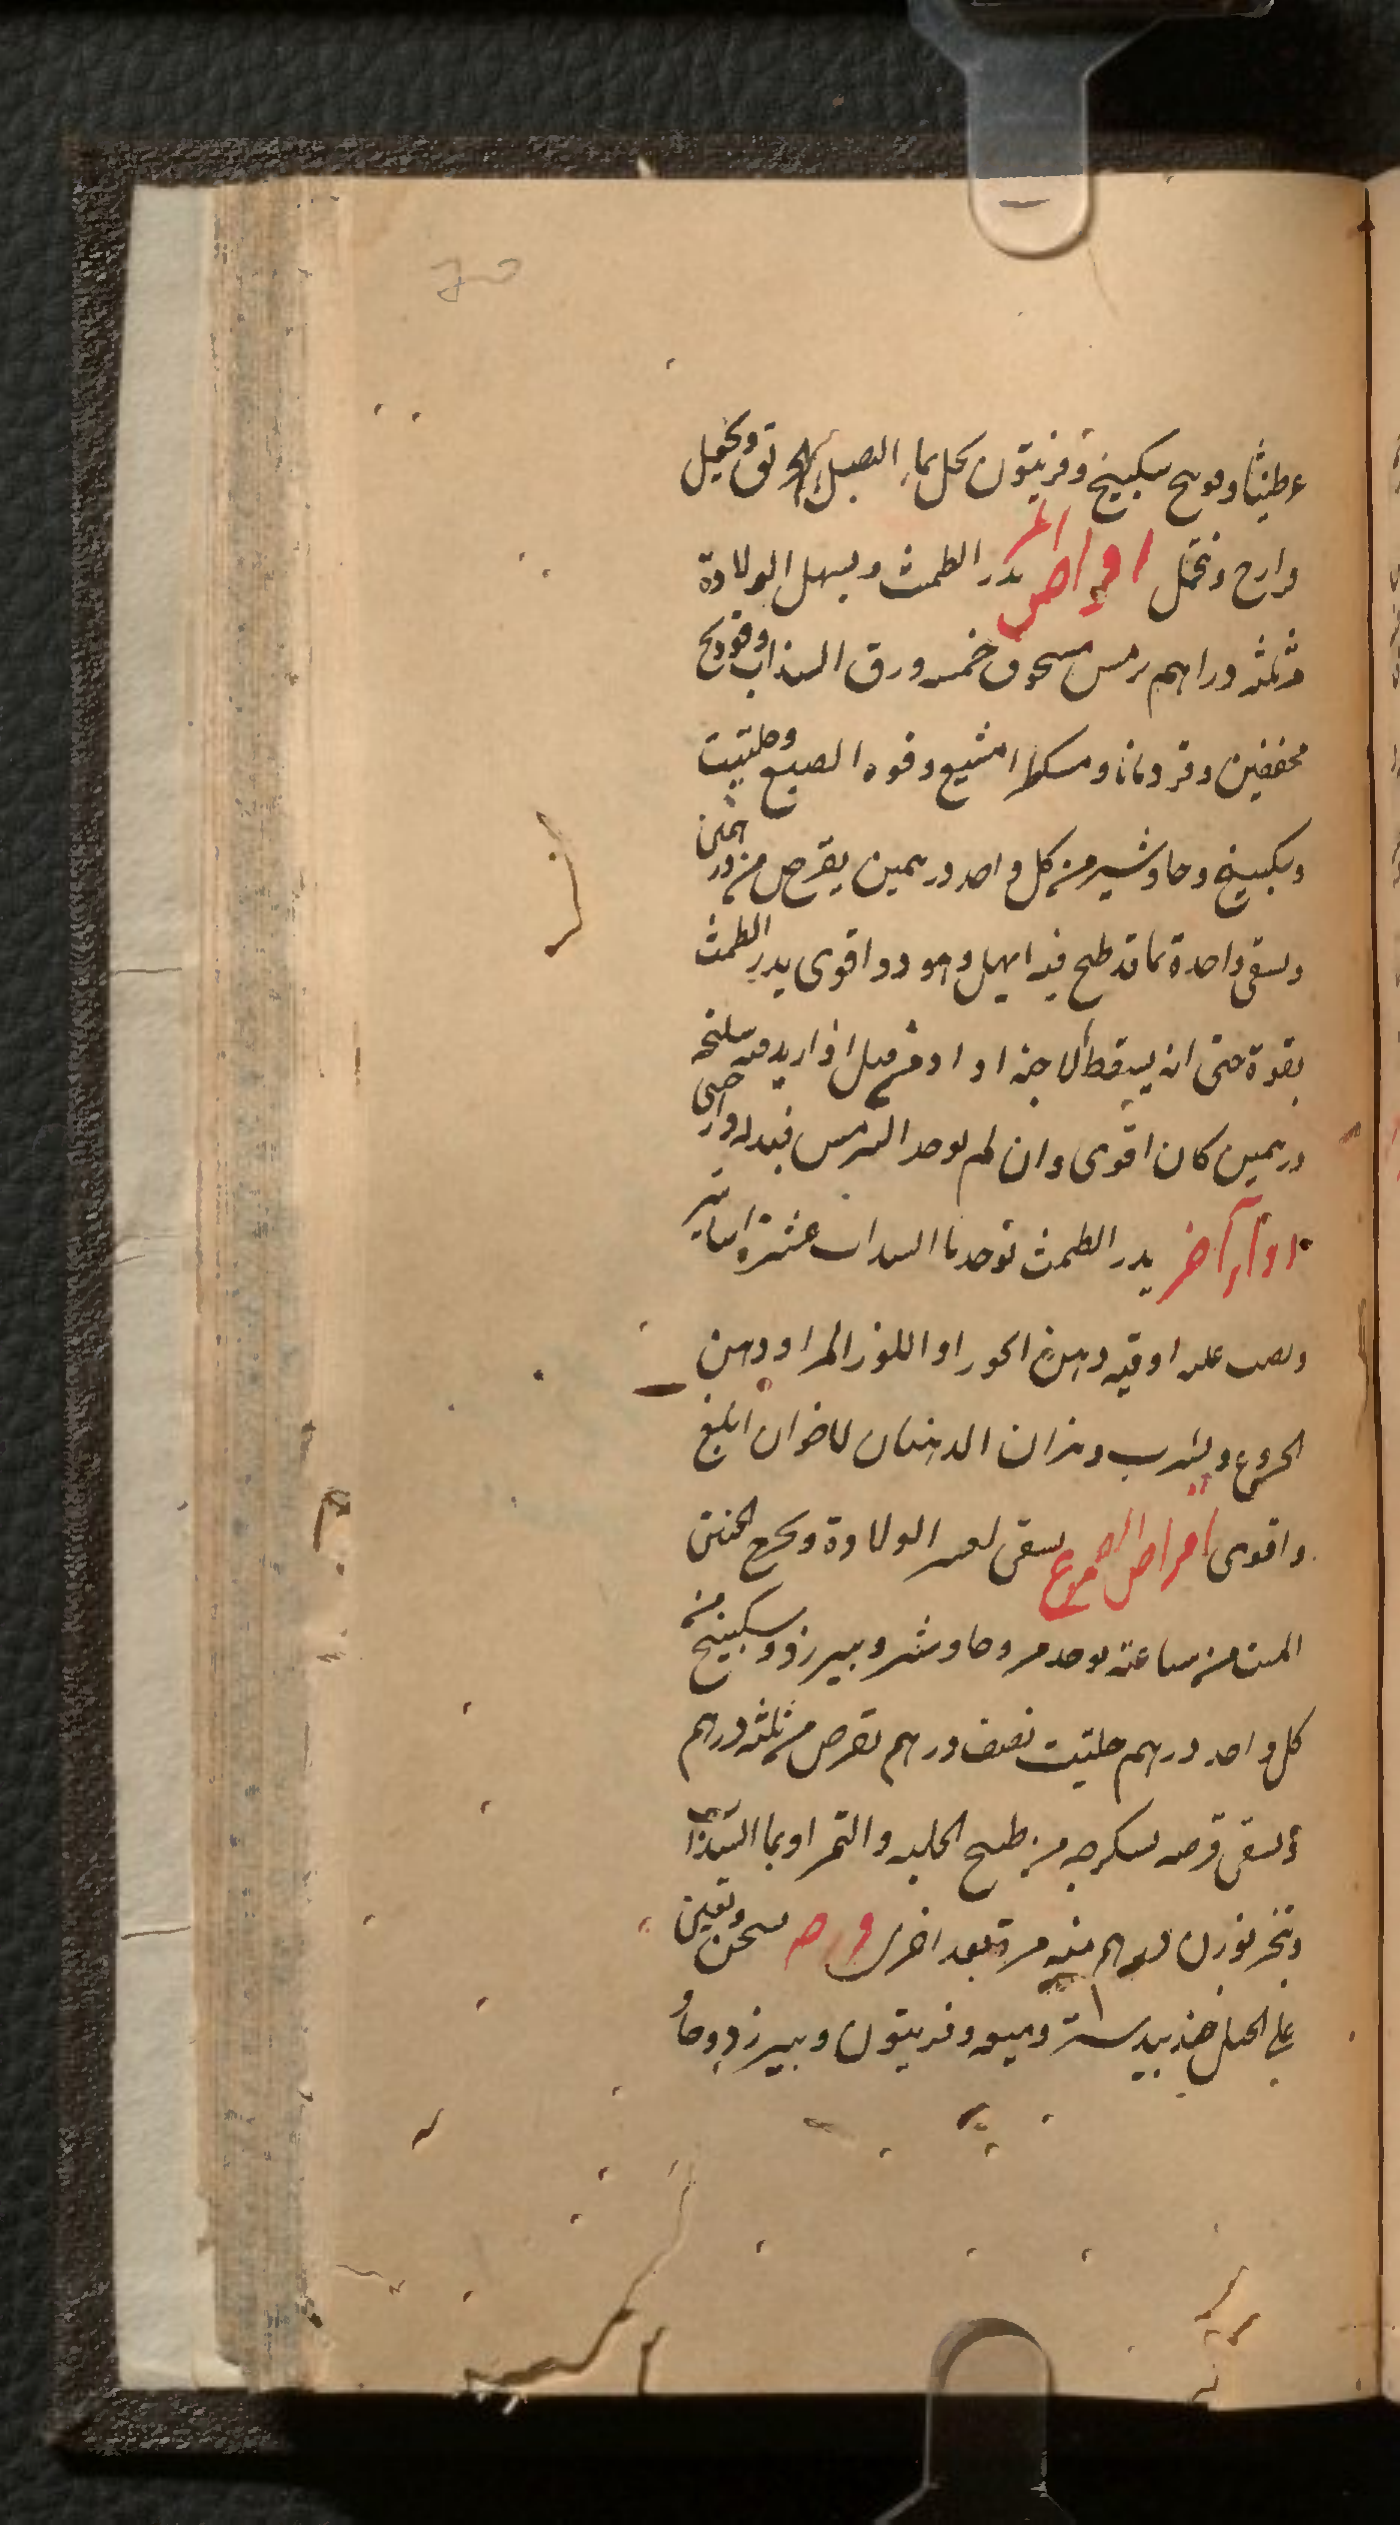 عرطنيثا وفوتنج سكبينج وفربيون يحل بماء البصل ويعمل
وارح وتحمل اقراص المر يدر الطمث ويسهل الولادة
مر ثلثه دراهم ترمس مسحوق خمسه ورق السذاب وفودنج
مجففين وقردمانا ومسكطرامشيع وفوه الصبغ وحلتيت
وسكبينج وجاوشير من كل واحد درهمين يقرص من درهمين
ويسقى واحدة بما قد طبخ فيه ابهل وهو دوا قوى يدر الطمث
بقوة حتى انه يسقط الاجنه اذا اريد فيه سليخه
درهمين كان اقوى وان لم يوجد الترمس فبدله دارصينى
دواء آخر يدر الطمث يوخذ ما السذاب عشرة اساتير
ويصب عليه اوقيه دهن الجوز او اللوز المر او دهن
الخروع ويشرب وهذان الدهنان الاخران ابلغ
واقوى اقراص يسقى لعسر الولادة ويخرج الجنين
الميت من ساعته يوخذ مر وجاوشير وبيرزد وسكبينج من
كل واحد درهم حلتيت نصف درهم يقرص من ثلثه درهم
ويسقى قرصه بسكرجه من طبيخ الحلبه والتمر او بما السذاب
وتبخر بوزن درهم منه مرة بعد اخرى يسحق وتعين
على الحبل جندبيدستر وميعه وفربيون وبيرزد وجا